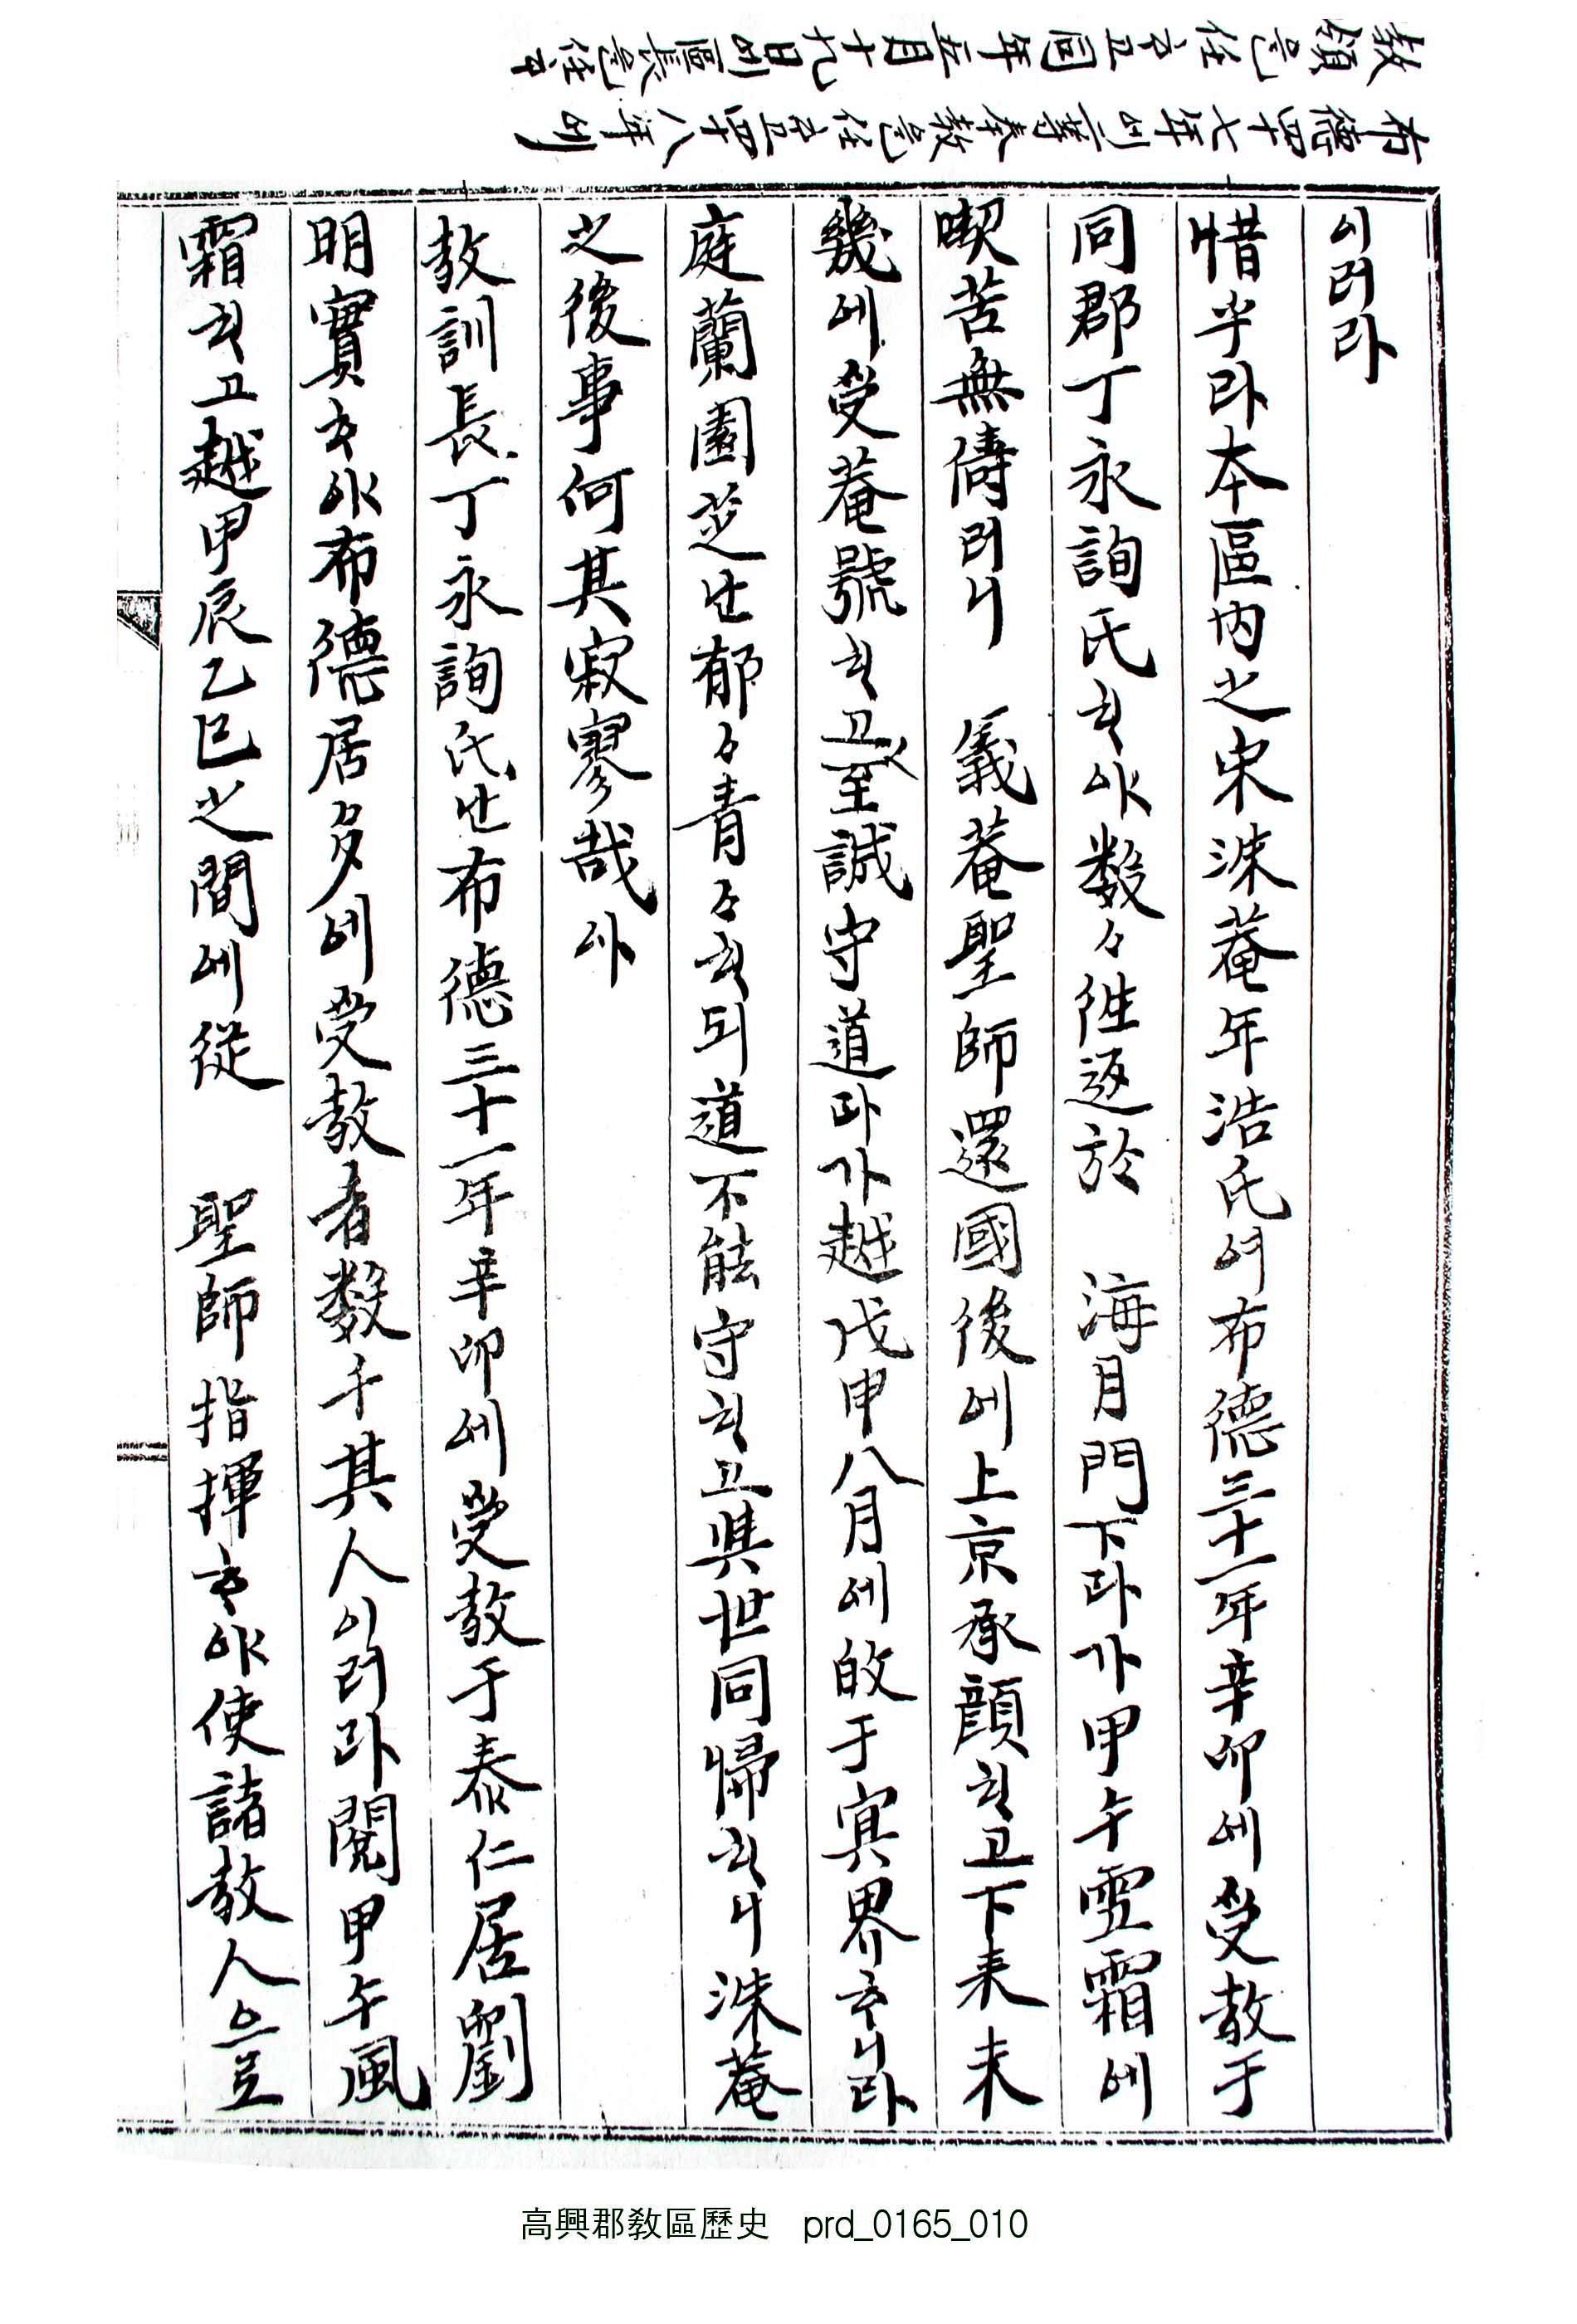 布德四十七年에一等奉敎을任ᄒᆞ고四十八年에
敎領을任ᄒᆞ고同年五月十九日에區長을任ᄒᆞ
이러라
惜乎라本區内之宋洙菴年浩氏여布德三十一年辛卯에受教于
同郡丁永詢氏ᄒᆞ야数々徃返於 海月門下라가甲午雪霜에
喫苦無儔러니 義菴聖師還國後에上京承顔ᄒᆞ고下来未
幾에受菴號ᄒᆞ고至誠守道라가越戊申八月에故于冥界ᄒᆞ니라
庭蘭園芝난郁々青々ᄒᆞ되道不能守ᄒᆞ고與世同帰ᄒᆞ니洙菴
之後事何其寂寥哉아
教訓長丁永詢氏난布德三十一年辛卯에受教于泰仁居劉
明實ᄒᆞ야布德居多에受教者数千其人이러라閱甲午風
霜ᄒᆞ고越甲辰乙巳之間에從 聖師指揮ᄒᆞ야使諸教人으로
高興郡敎區歷史 prd_0165_010